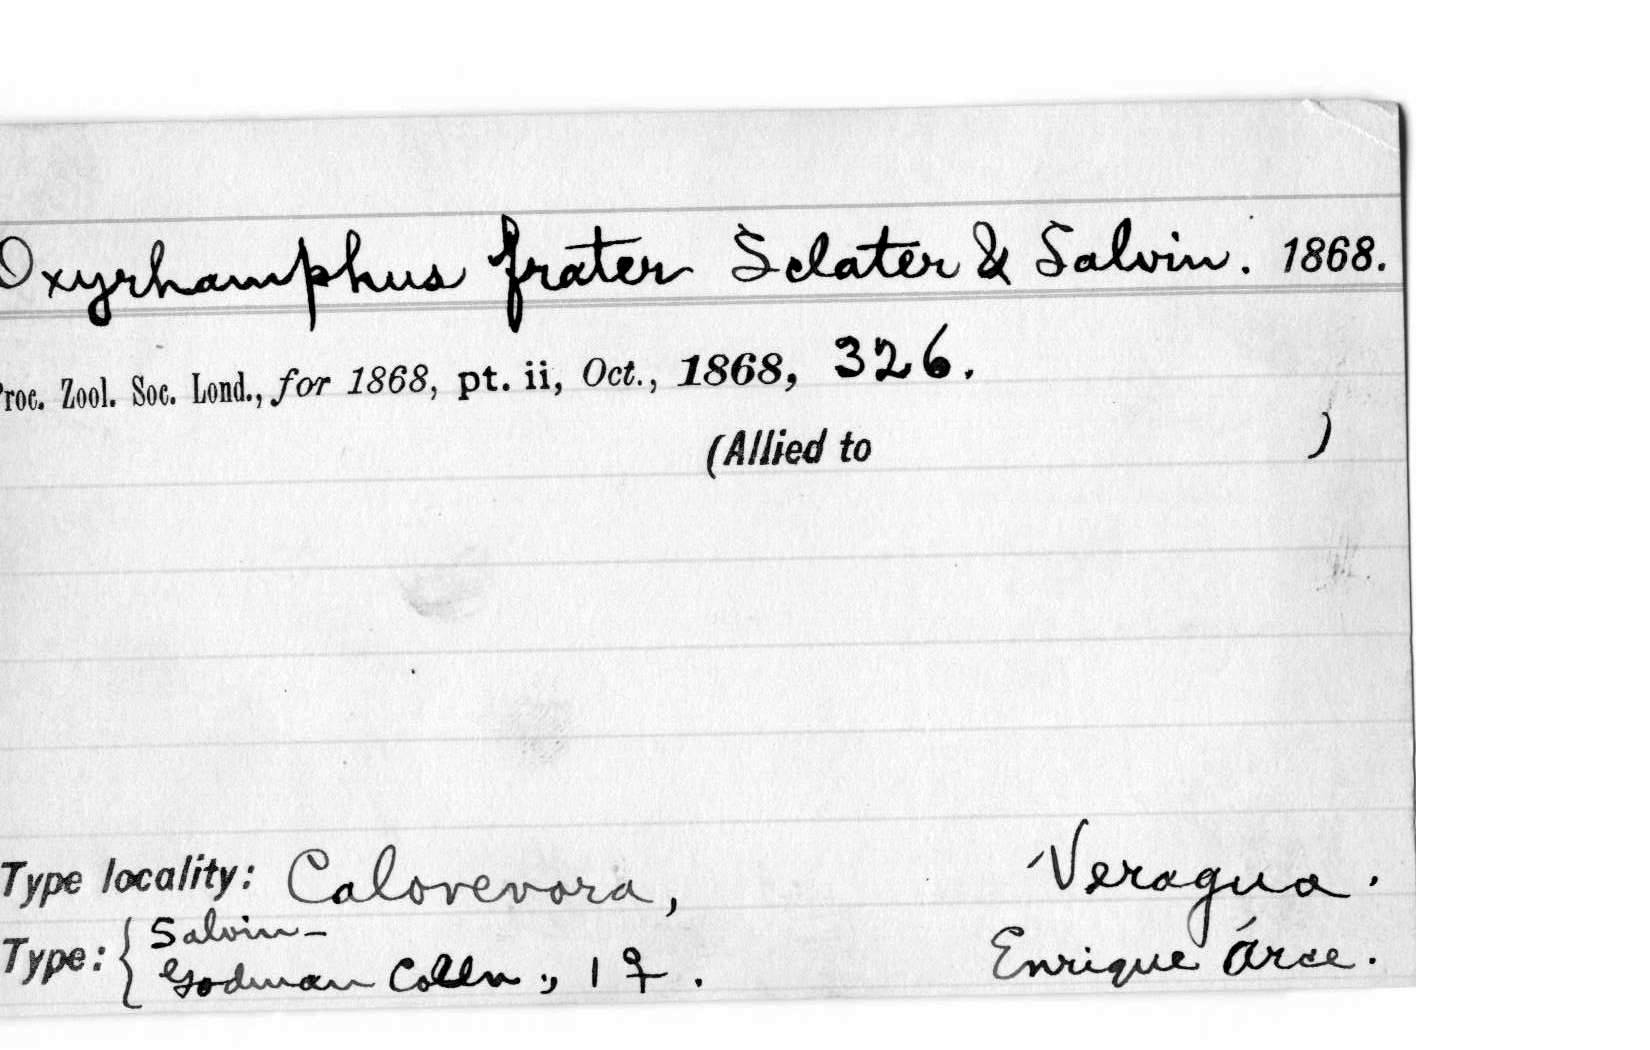 Oxyrhamphus frater Sclater & Salvin. 1868.
Proc. Zool. Soc. Lond., for 1868, pt. ii, Oct., 1868, 326.
(Allied to )
Type locality: Calovevora, Veragua.
Type: { Salvin-
Godman Colln., 1 ♀. Enrique Árce.